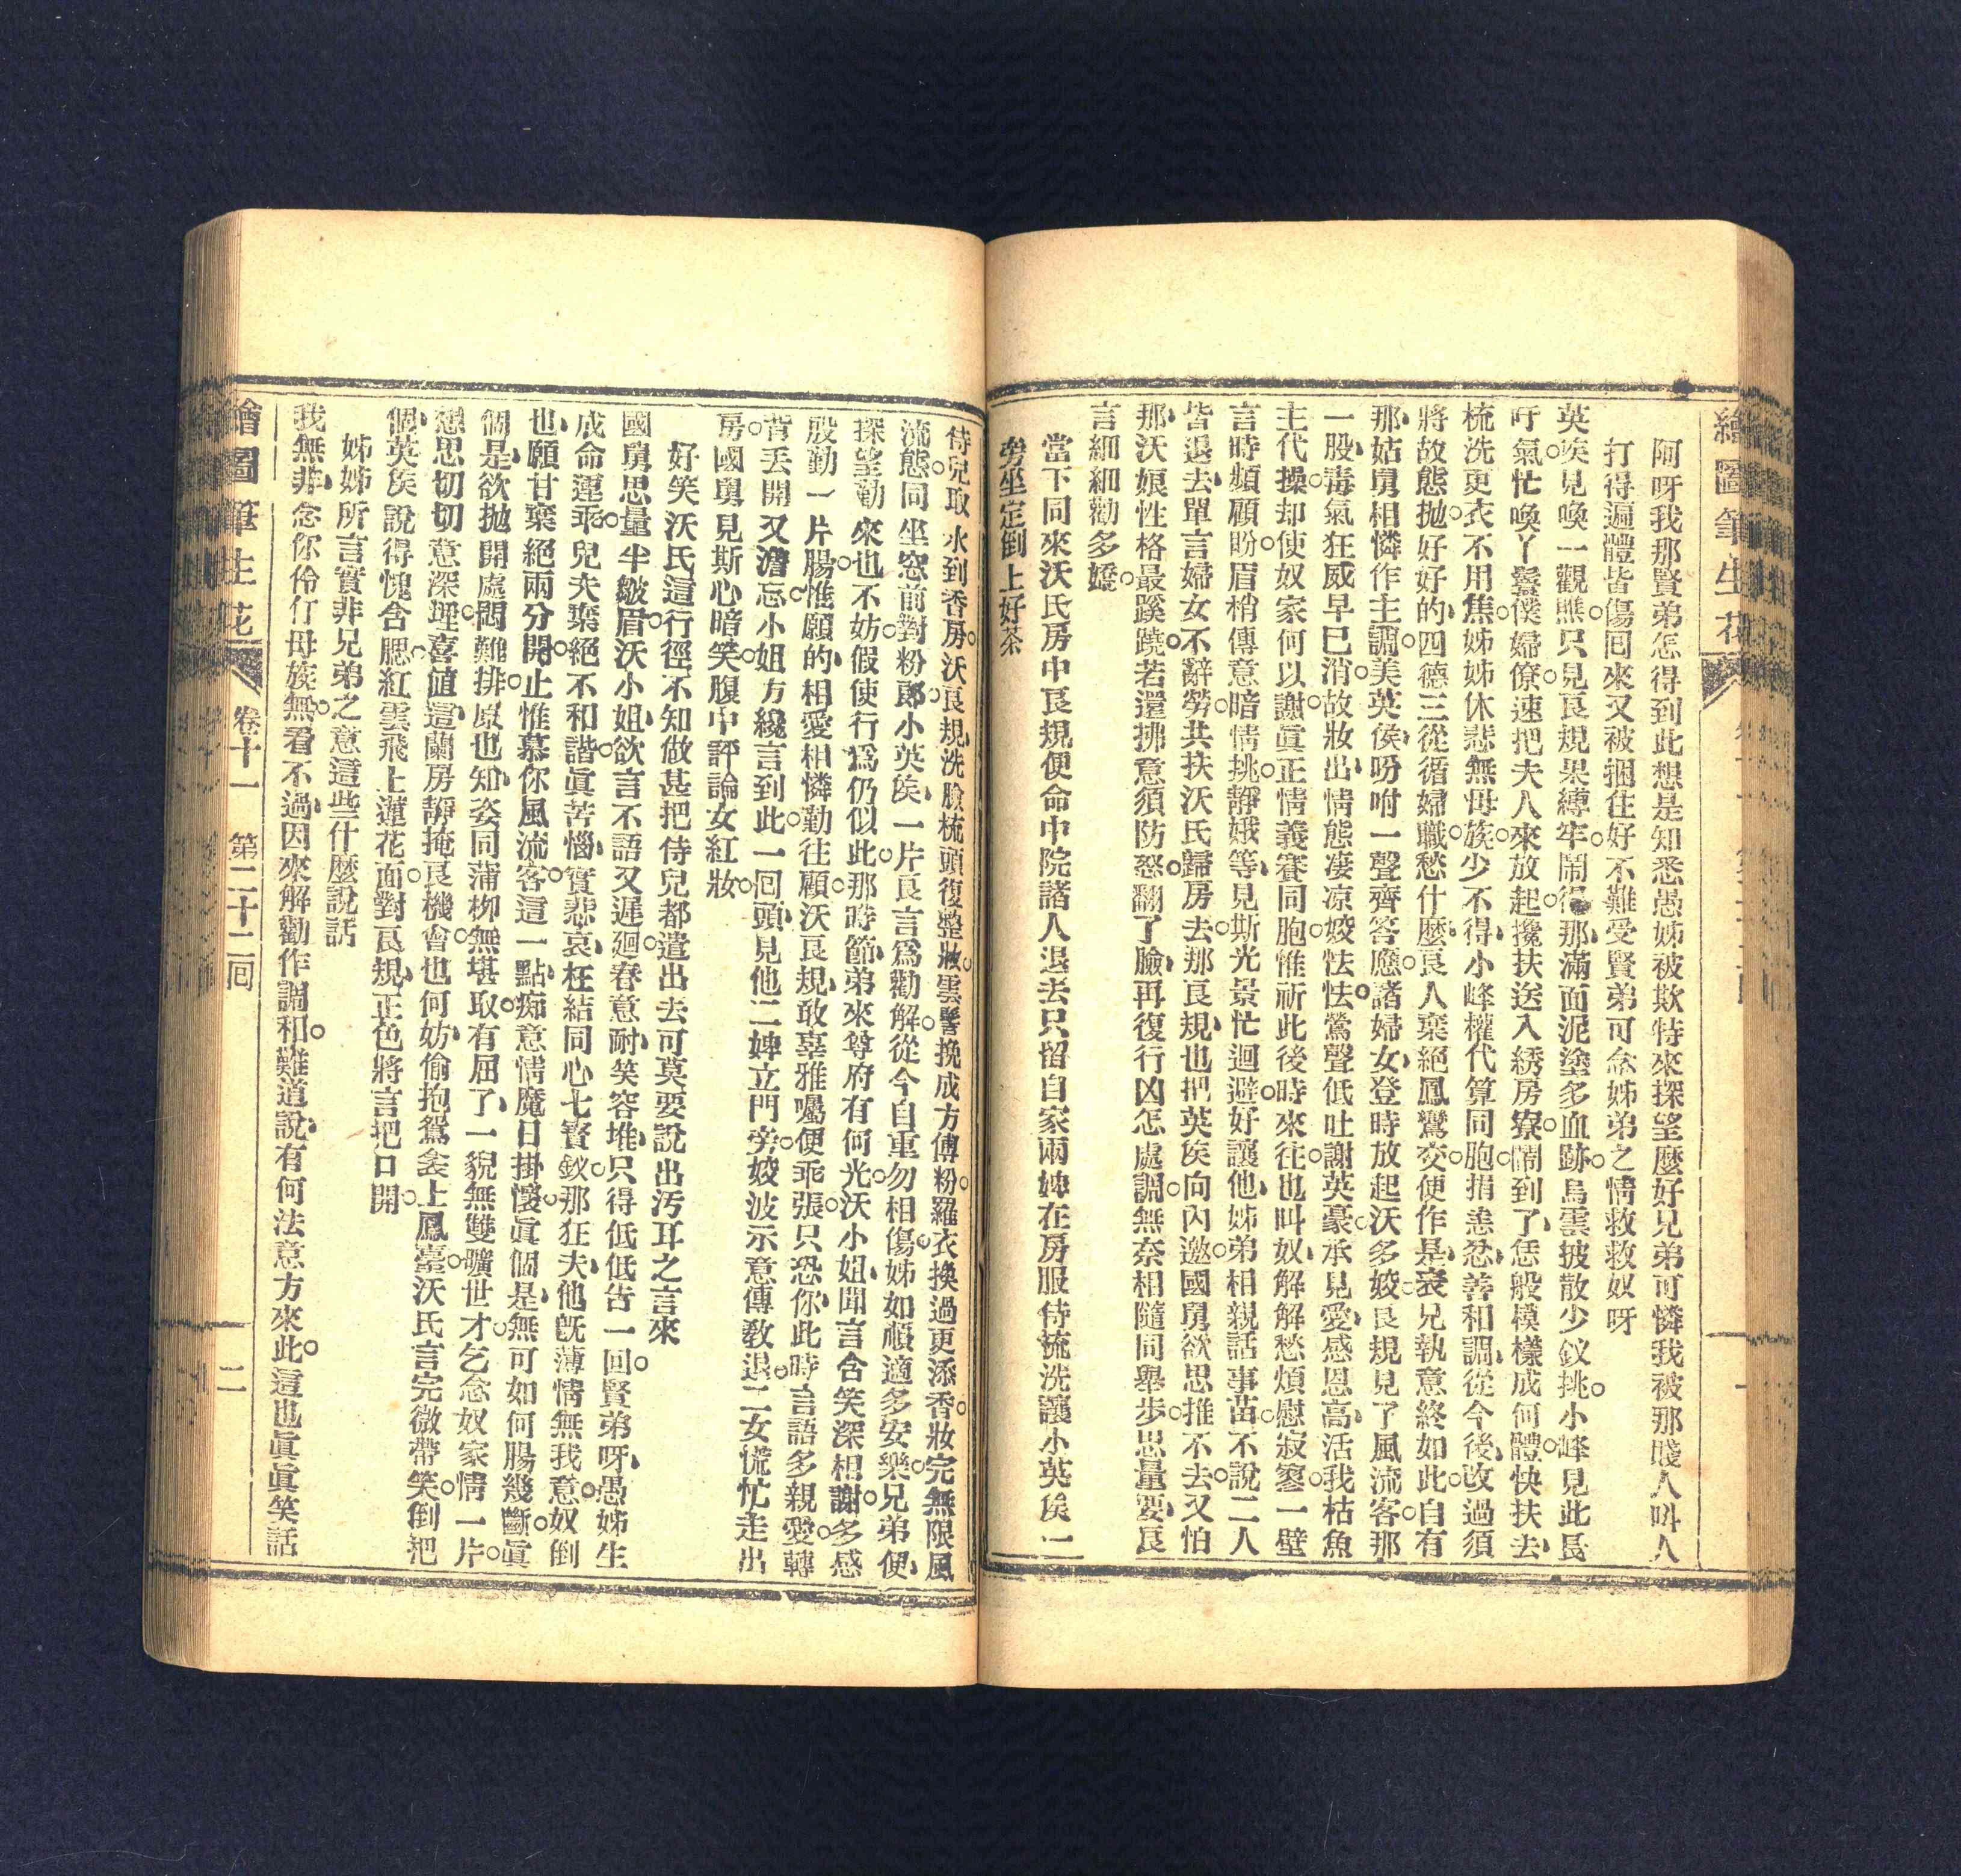 繪圖筆生花
阿呀我那賢弟怎得到此想是知悉愚姊被欺特來探望麼好兄弟可憐我被那賤人叫人
打得遍體皆傷回來又被捆住好不難受賢弟可念姊弟之情救救奴呀
英侯見喚一觀瞧只見良規果縛牢鬧得那滿面泥塗多血跡烏雲披散少釵挑小峰見此長
吁氣忙喚丫鬟僕婦僚速把夫人來放起攙扶送入綉房寮鬧到了恁般模樣成何體快扶去
梳洗更衣不用焦姊姊休悲無母族少不得小峰權代算同胞捐恚忿善和調從今後改過須
將故態拋好好的四德三從循婦職愁什麼良人棄絕鳳鸞交便作是袞兄執意終如此自有
那姑舅相憐作主調美英侯吩咐一聲齊答應諸婦女登時放起沃多姣良規見了風流客那
一股毒氣狂威早已消故妝出情態凄凉姣怯怯鶯聲低吐謝英豪承見愛感恩高活我枯魚
主代操却使奴家何以謝眞正情義賽同胞惟祈此後時來往也叫奴解解愁煩慰寂寥一壁
言時頻顧盼眉梢傳意暗情挑靜娥等見斯光景忙迴避好讓他姊弟相親話事苗不說二人
皆退去單言婦女不辭勞共扶沃氏歸房去那良規也把英侯向內邀國舅欲思推不去又怕
那沃娘性格最蹊蹺若還拂意須防怒翻了臉再復行凶怎處調無奈相隨同舉步思量要良
言細細勸多嬌
當下同來沃氏房中良規便命中院諸人退去只留自家兩婢在房服侍梳洗讓小英侯一
旁坐定倒上好茶
侍兒取水到香房沃良規洗臉梳頭復整妝雲髻挽成方傅粉羅衣換過更添香妝完無限風
流態同坐窓前對粉郎小英侯一片良言爲勸解從今自重勿相傷姊如順適多安樂兄弟便
探望勤來也不妨假使行爲仍似此那時節弟來尊府有何光沃小姐聞言含笑深相謝多感
殷勤一片腸惟願的相愛相憐勤往顧沃良規敢辜雅囑便乖張只恐你此時言語多親愛轉
背丟開又澹忘小姐方纔言到此一回頭見他二婢立門旁姣波示意傳教退二女慌忙走出
房國舅見斯心暗笑腹中評論女紅妝
好笑沃氏這行徑不知做甚把侍兒都遣出去可莫要說出汚耳之言來
國舅思量半皺眉沃小姐欲言不語又遲廻春意耐笑容堆只得低低告一回賢弟呀愚姊生
成命運乖兒夫棄絕不和諧眞苦惱實悲哀枉結同心七寳釵那狂夫他旣薄情無我意奴倒
也願甘棄絕兩分開止惟慕你風流客這一點痴意情魔日掛懷眞個是無可如何腸幾斷眞
個是欲拋開處悶難排原也知姿同蒲柳無堪取有屈了一貌無雙曠世才乞念奴家情一片
想思切切意深埋喜値這蘭房靜掩良機會也何妨偷抱鴛衾上鳳臺沃氏言完微帶笑倒把
個英侯說得愧含腮紅雲飛上蓮花面對良規正色將言把口開
姊姊所言實非兄弟之意這些什麼說話
我無非念你伶仃母族無看不過因來解勸作調和難道說有何法意方來此這也眞眞笑話
繪圖筆生花
卷十一
第二十二回
二